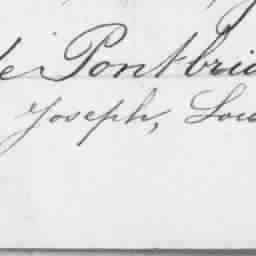 de Pontbria
Joseph, Lou